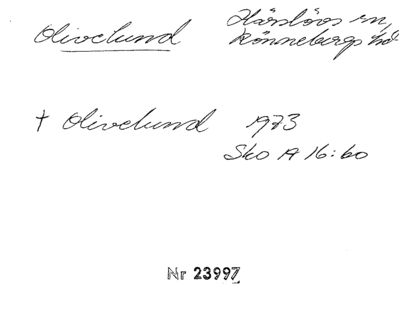 Olivelund Härslövs sn,
Rönnebergs hd
† Olivelund 1973
Sko A 16:60
Nr 23997